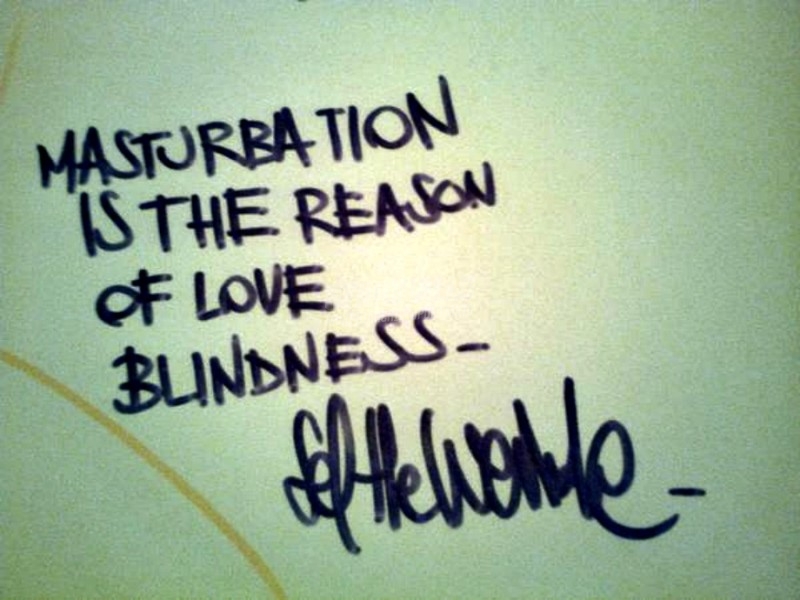 MASTURBATION
IS THE REASON
OF LOVE
BLINDNESS-